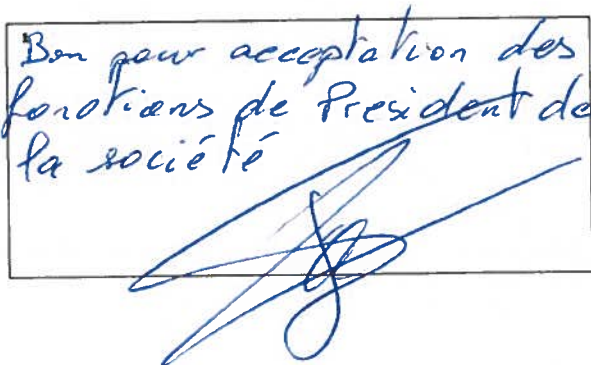 Bon pour acceptation des
fonctions de President de
la société